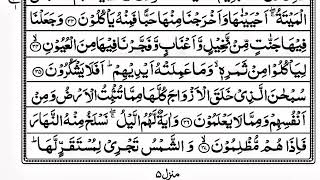 الْمَيْتَةُ ۖۚ اَحْيَيْنٰهَا وَاَخْرَجْنَا مِنْهَا حَبًّا فَمِنْهُ يَاْكُلُوْنَ ﴿۳۳﴾ وَجَعَلْنَا
فِيْهَا جَنّٰتٍ مِّنْ نَّخِيْلٍ وَّاَعْنَابٍ وَّفَجَّرْنَا فِيْهَا مِنَ الْعُيُوْنِ ﴿۳۴﴾
لِيَاْكُلُوْا مِنْ ثَمَرِهٖ ۙ وَمَا عَمِلَتْهُ اَيْدِيْهِمْ ؕ اَفَلَا يَشْكُرُوْنَ ﴿۳۵﴾
سُبْحٰنَ الَّذِيْ خَلَقَ الْاَزْوَاجَ كُلَّهَا مِمَّا تُنْۢبِتُ الْاَرْضُ وَمِنْ
اَنْفُسِهِمْ وَمِمَّا لَا يَعْلَمُوْنَ ﴿۳۶﴾ وَاٰيَةٌ لَّهُمُ الَّيْلُ ۖۚ نَسْلَخُ مِنْهُ النَّهَارَ
فَاِذَا هُمْ مُّظْلِمُوْنَ ﴿۳۷﴾ وَالشَّمْسُ تَجْرِيْ لِمُسْتَقَرٍّ لَّهَا ؕ
منزل ۵